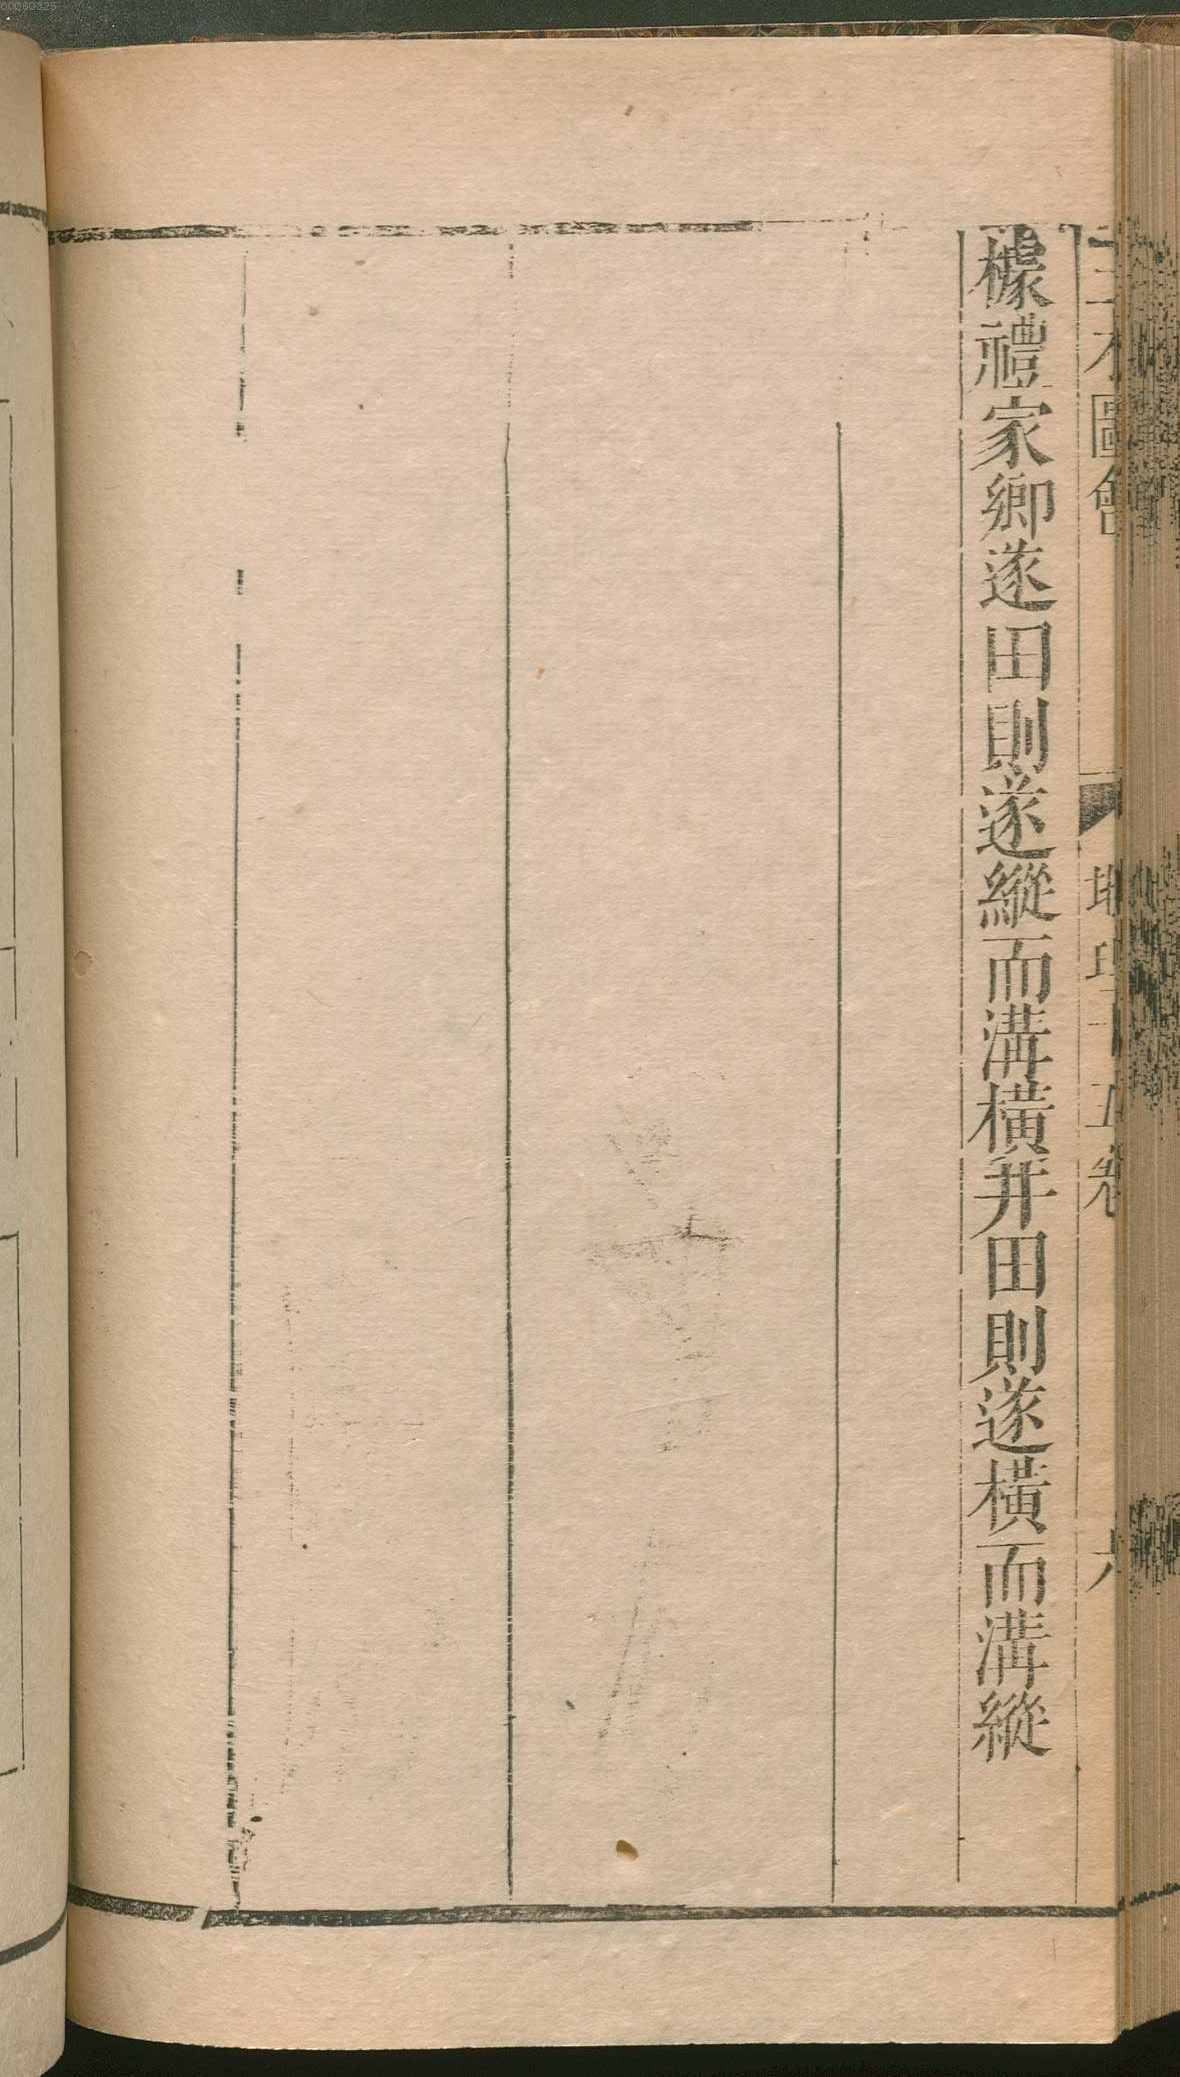 三才圖會 地理十五卷 六
據禮家鄉遂田則遂縱而溝橫井田則遂橫而溝縱
00060325